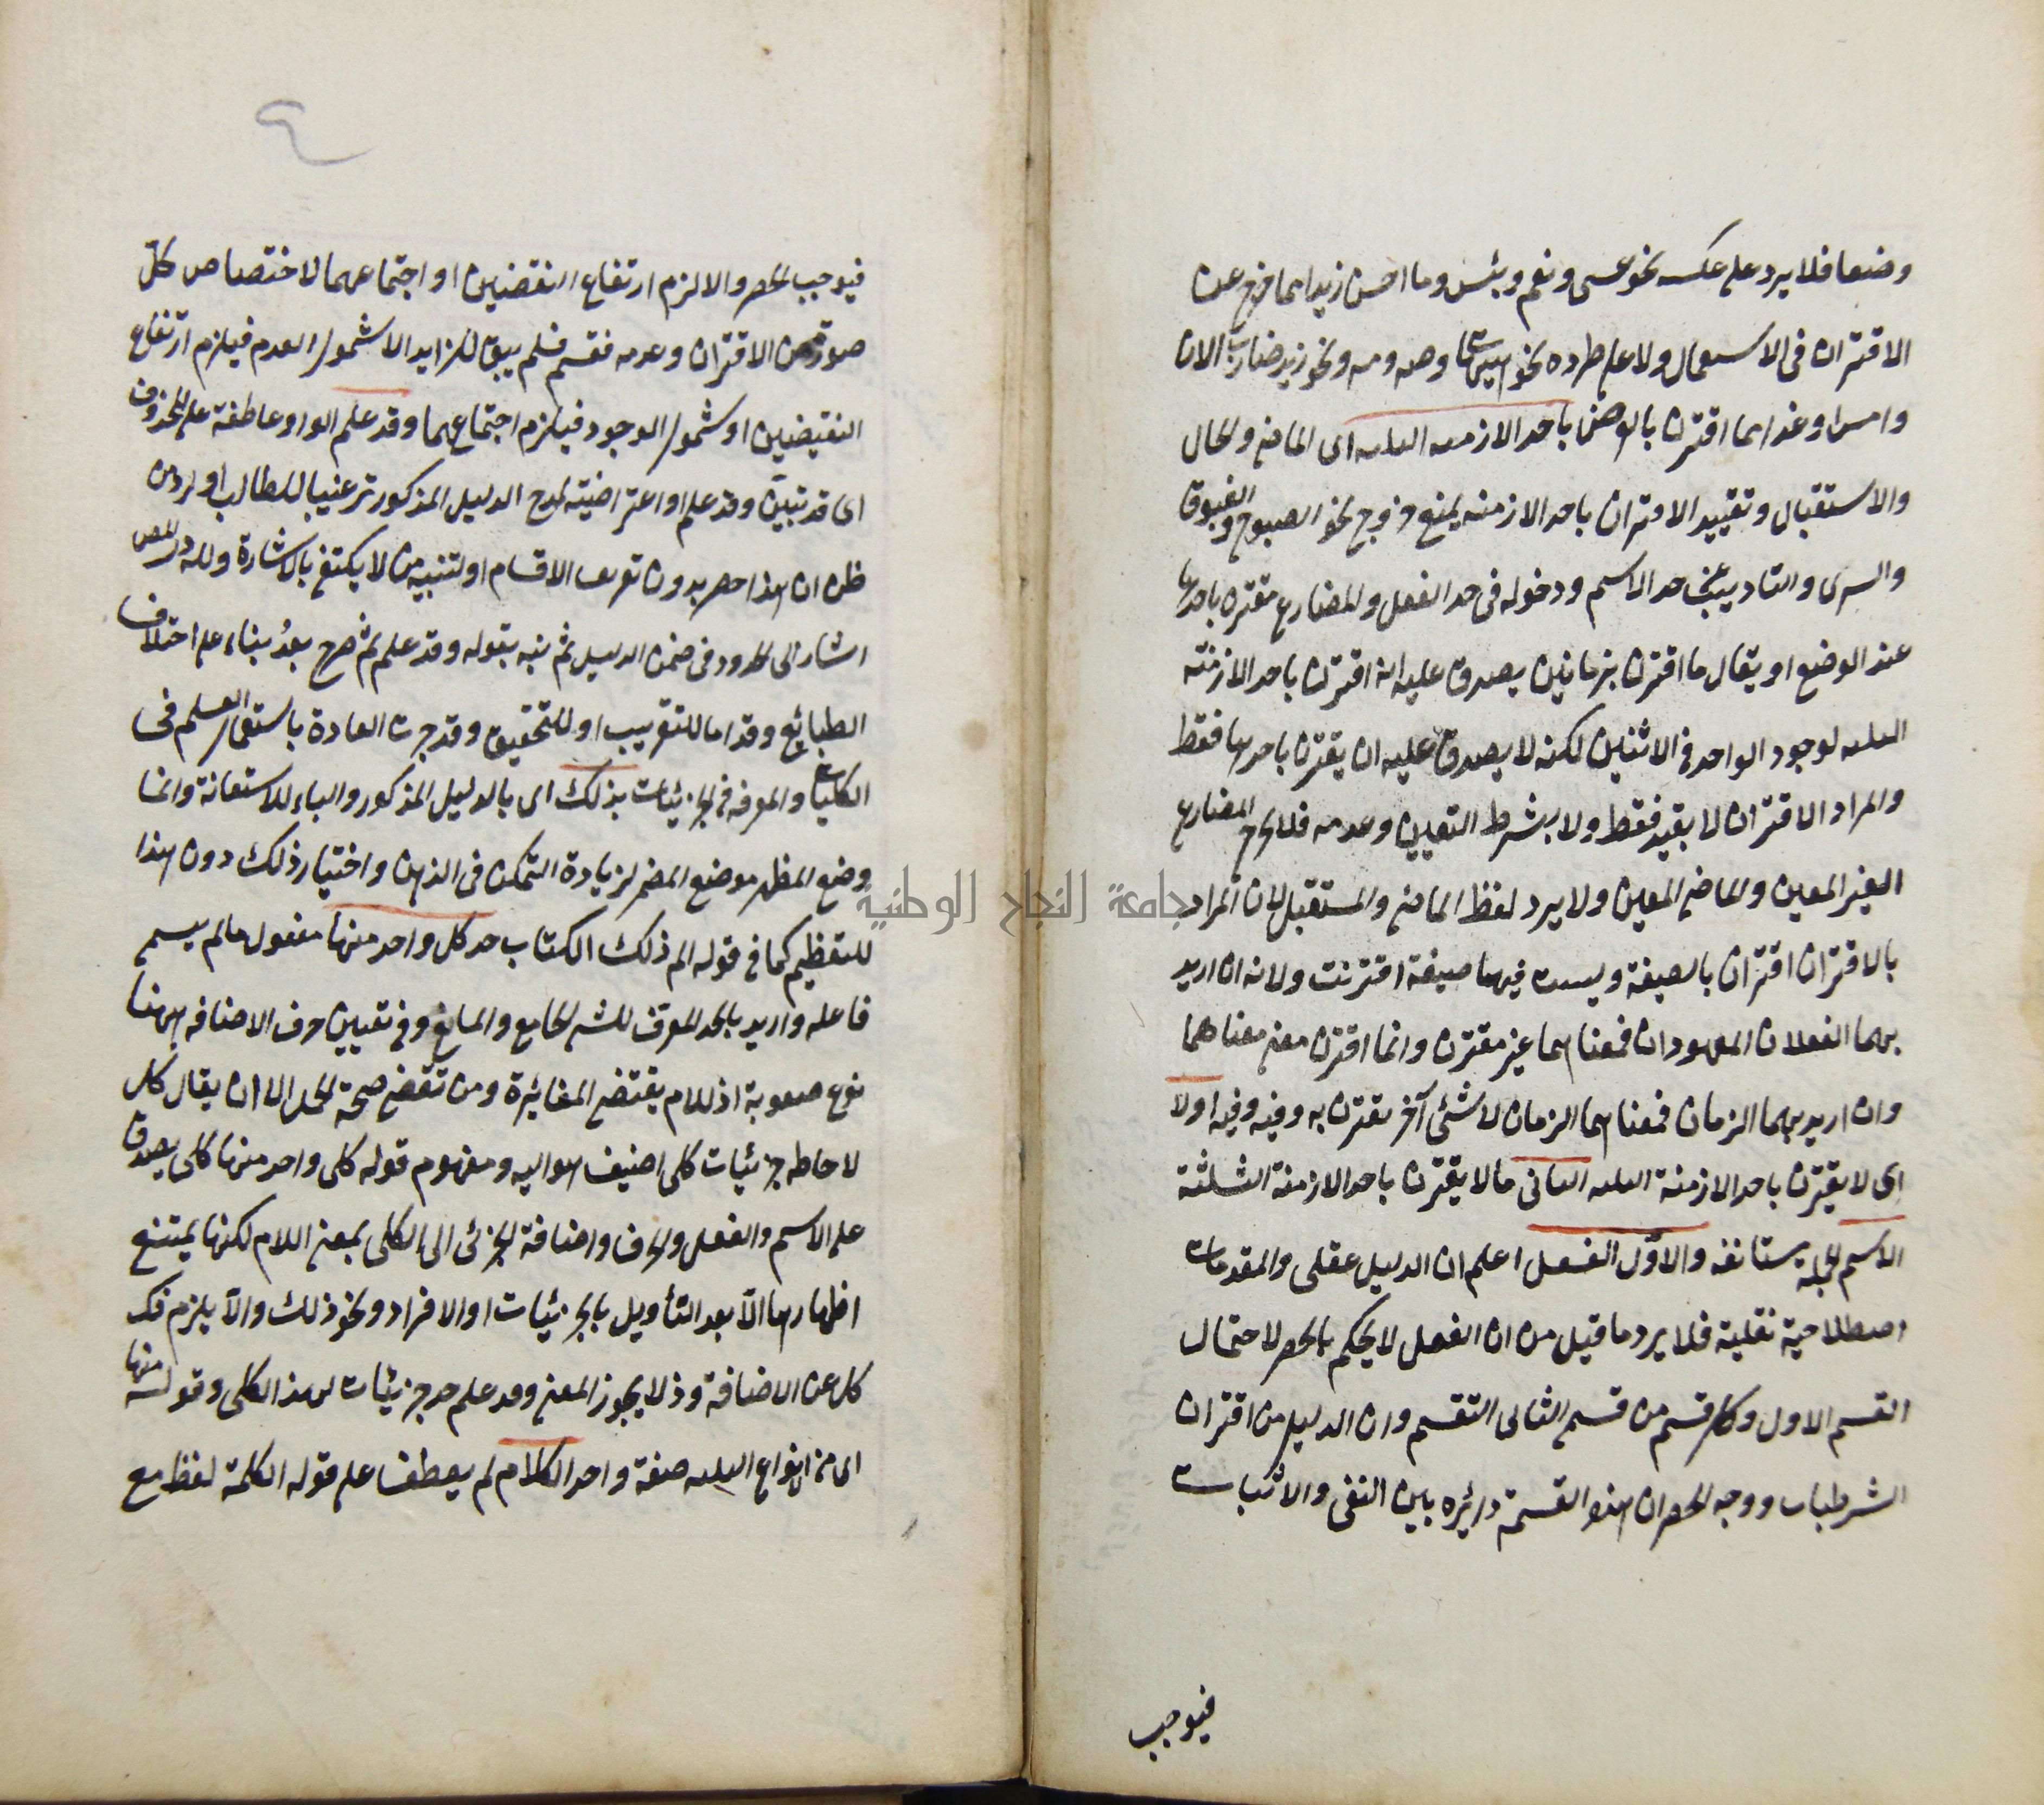 وضعا فلا يرد على عكسه نحو عسى ونعم وبئس وما احسن زيدا مما خرج عن
الاقتران فى الاستعمال ولا على طرده نحو هيهات وصه ومه ونحو زيد ضارب الان
وامس او غدا مما اقترن بالعرض باحد الازمنه الثلثه اى الماضى والحال
والاستقبال وتقييد الاقتران باحد الازمنه يمنع خروج نحو الصبوح والغبوق
والسرى والتاديب عن حد الاسم ودخوله فى حد الفعل والمضارع مقترن باحدها
عند الوضع او يقال ما اقترن بزمانين يصدق عليه انه اقترن باحد الازمنته
الثلثه لوجود الواحد فى الاثنين لكنه لا يصدق عليه ان يقترن باحدها فقط
والمراد الاقتران لا بقيد فقط ولا بشرط التعيين وعدمه فلا يخرج المضارع
الغير المعين والماضى المعين ولا يرد لفظ الماضى والمستقبل لان المراد
بالاقتران اقتران بالصيغة وليست فيهما صيغة اقترنت ولانه ان اريد
بهما الفعلان المعهودان فمعناهما غير مقترن وانما اقترن معنى معناهما
وان اريد بهما الزمان فمعناهما الزمان لا شئ آخر يقترن به وفيه وفيه اولا
اى لا يقترن باحد الازمنة الثلثه الثانى ما لا يقترن باحد الازمنة الثلثة
الاسم الجملة مستانفه والاول الفعل اعلم ان الدليل عقلى والمقدمات
اصطلاحية نقلية فلا يرد ما قيل من ان العقل لا يحكم بالحصر لاحتمال
القسم الاول وكل قسم من قسمى الثانى التقسيم وان الدليل من اقتران
الشرطيات ووجه الحصر ان هذه القسمة دائره بين النفى والاثبات
فيوجب
فيوجب الحصر والا لزم ارتفاع النقضين او اجتماعهما لاختصاص كل
صورة من الاقتران وعدمه فقسم فلم يبق للزايد الا شمول العدم فيلزم ارتفاع
النقيضين او شمول الوجود فيلزم اجتماعهما وقد علم الواو عاطفة على المحذوف
اى قد تبين وقد علم او اعتراضيته لمدح الدليل المذكور ترغيبا للطالب او لرد من
ظن ان هذا حصر بدون تعريف الاقسام او لتنبيه من لا يكتفى بالاشارة ولله در المص
اشار الى الحدود فى ضمن الدليل ثم نبه بقوله وقد علم ثم صرح بعد بناء على اختلاف
الطبايع وقد اما للتقريب او للتحقيق وقد جرت العادة باستعمال العلم فى
الكليات والمعرفه فى الجزئيات بذلك اى بالدليل المذكور والباء للاستعانة وانما
وضع المظهر موضع المضمر لزيادة التمكن فى الذهن واختيار ذلك دون هذا
للتعظيم كما فى قوله الم ذلك الكتاب حد كل واحد منها مفعول ما لم يسم
فاعله واريد بالحد المعرف للشئ الجامع والمانع وفى تعيين حرف الاضافه ههنا
نوع صعوبة اذ للام يقتضى المغائرة ومن تقتضى صحة الحمل الا ان يقال كل
لاحاطه جزئيات كلى اضيف هو اليه ومفهوم قوله كل واحد منها كلى يصدق
على الاسم والفعل والحرف واضافة الجزئى الى الكلى بمعنى اللام لكنها يمتنع
اظهارها الا بعد التأويل بالجزئيات او الافراد ونحو ذلك والا يلزم فك
كل عن الاضافة وذ لا يجوز المعنى وقد علم حد جزئيات هذا الكلى وقوله منها
اى من انواع الثلثه صفة واحد الكلام لم يعطف على قوله الكلمة لفظ مع
جامعة النجاح الوطنية